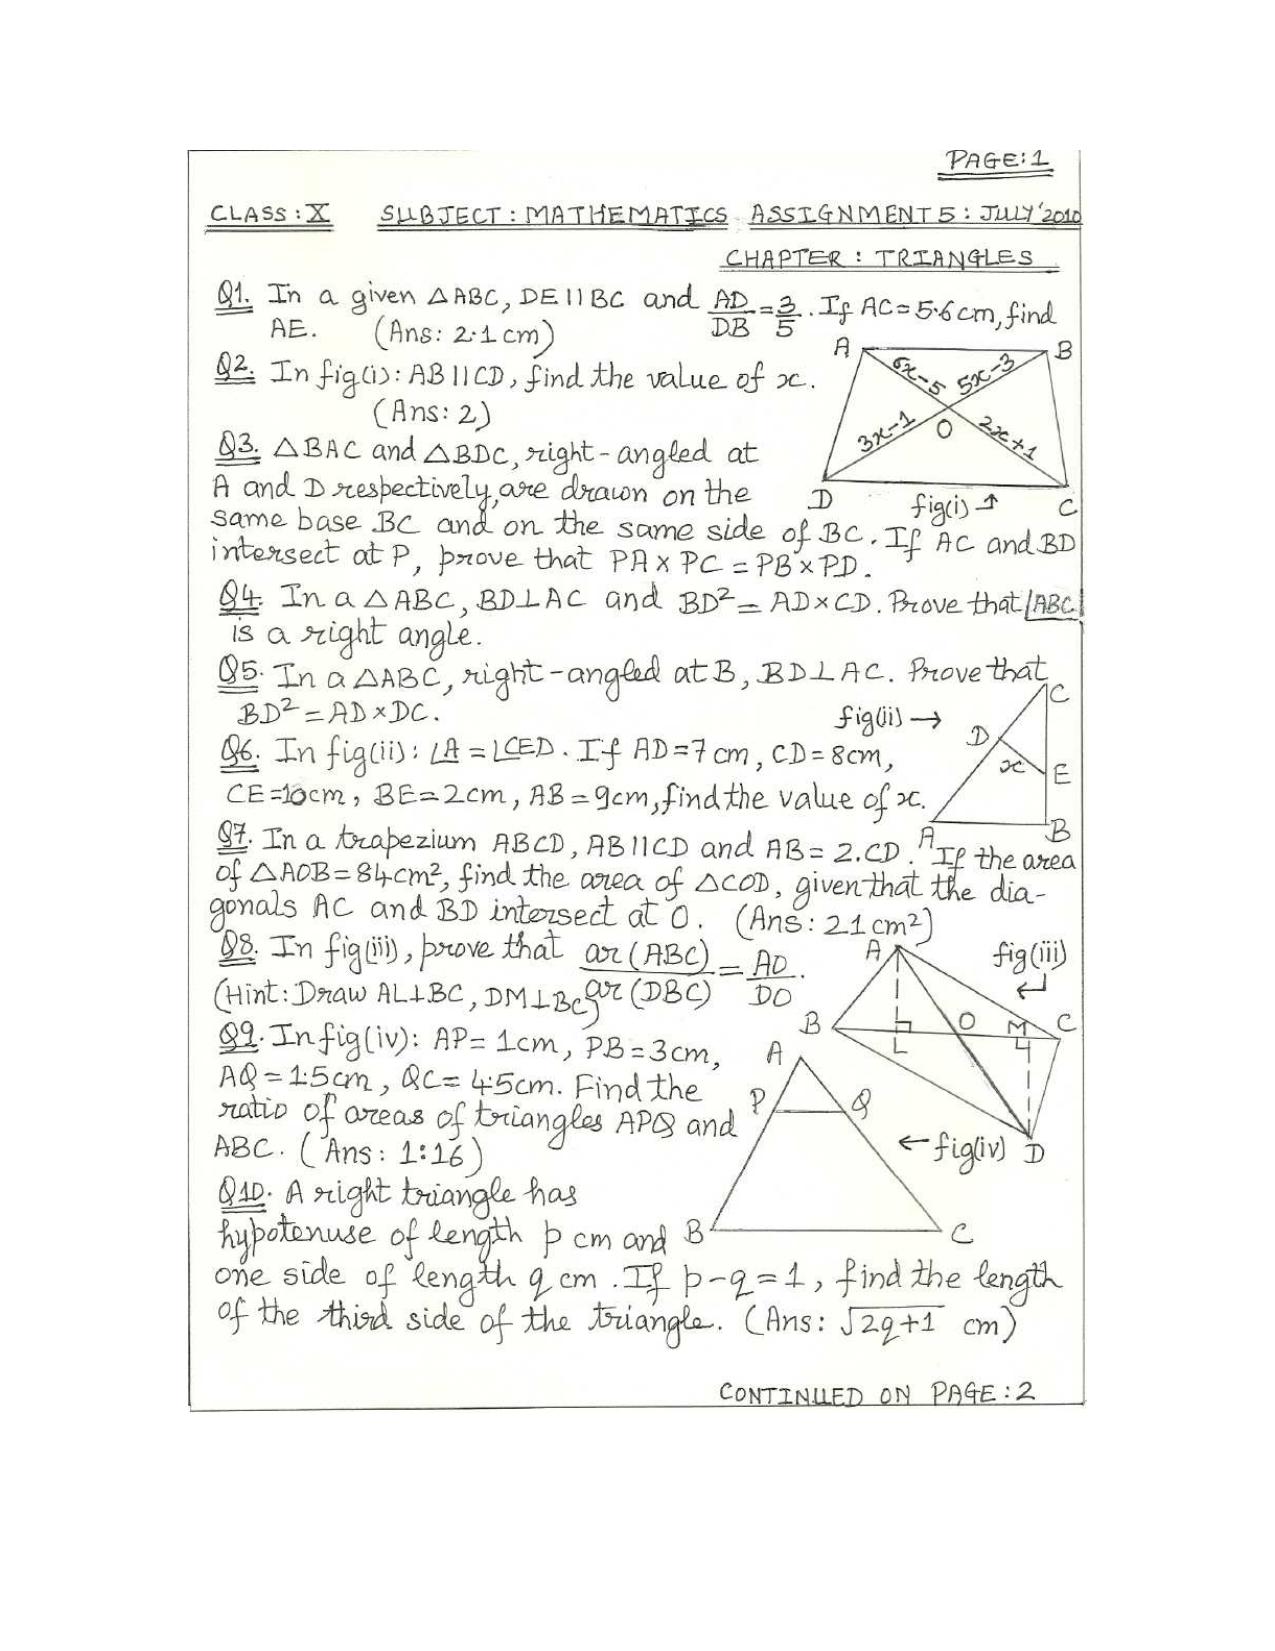 PAGE:1
CLASS: X SUBJECT: MATHEMATICS ASSIGNMENT 5: JULY'2010
CHAPTER: TRIANGLES
Q1. In a given △ABC, DE||BC and AD/DB = 3/5. If AC=5.6cm, find
AE. (Ans: 2.1cm)
A B
Q2. In fig(i): AB||CD, find the value of x.
6x-5 5x-3
(Ans: 2)
3x-1 O 2x+1
Q3. △BAC and △BDC, right-angled at
A and D respectively, are drawn on the
D fig(i) ↑ C
same base BC and on the same side of BC. If AC and BD
intersect at P, prove that PA × PC = PB × PD.
Q4. In a △ABC, BD⊥AC and BD² = AD×CD. Prove that ∠ABC
is a right angle.
Q5. In a △ABC, right-angled at B, BD⊥AC. Prove that
BD² = AD×DC.
fig(ii) →
C
D
x E
A B
Q6. In fig(ii): ∠A = ∠CED. If AD=7cm, CD=8cm,
CE=10cm, BE=2cm, AB=9cm, find the value of x.
Q7. In a trapezium ABCD, AB||CD and AB=2.CD. If the area
of △AOB=84cm², find the area of △COD, given that the dia-
gonals AC and BD intersect at O. (Ans: 21cm²)
Q8. In fig(iii), prove that ar(ABC)/ar(DBC) = AO/DO.
(Hint: Draw AL⊥BC, DM⊥BC)
A fig(iii)
B L O M C
D
Q9. In fig(iv): AP=1cm, PB=3cm,
AQ=1.5cm, QC=4.5cm. Find the
ratio of areas of triangles APQ and
ABC. (Ans: 1:16)
A
P Q
← fig(iv)
B C
Q10. A right triangle has
hypotenuse of length p cm and
one side of length q cm. If p-q=1, find the length
of the third side of the triangle. (Ans: √2q+1 cm)
CONTINUED ON PAGE:2